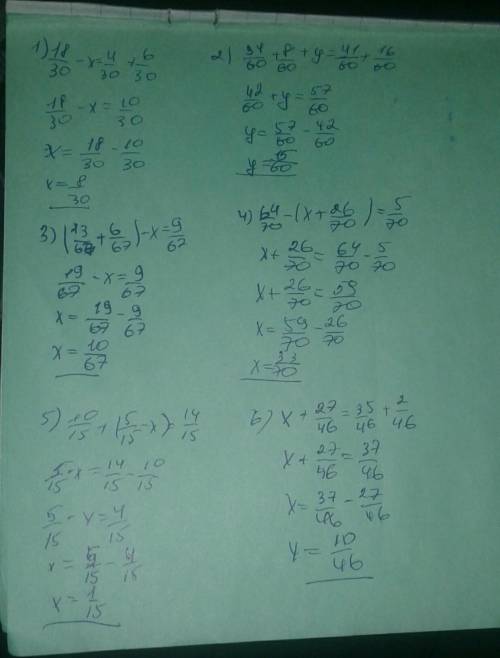 1) 18/30 - x = 4/30 + 6/30
18/30 - x = 10/30
x = 18/30 - 10/30
x = 8/30
2) 34/60 + 8/60 + y = 41/60 + 16/60
42/60 + y = 57/60
y = 57/60 - 42/60
y = 15/60
3) (13/67 + 6/67) - x = 9/67
19/67 - x = 9/67
x = 19/67 - 9/67
x = 10/67
4) 64/70 - (x + 26/70) = 5/70
x + 26/70 = 64/70 - 5/70
x + 26/70 = 59/70
x = 59/70 - 26/70
x = 33/70
5) 10/15 + (5/15 - x) = 14/15
5/15 - x = 14/15 - 10/15
5/15 - x = 4/15
x = 5/15 - 4/15
x = 1/15
6) x + 27/46 = 35/46 + 2/46
x + 27/46 = 37/46
x = 37/46 - 27/46
x = 10/46